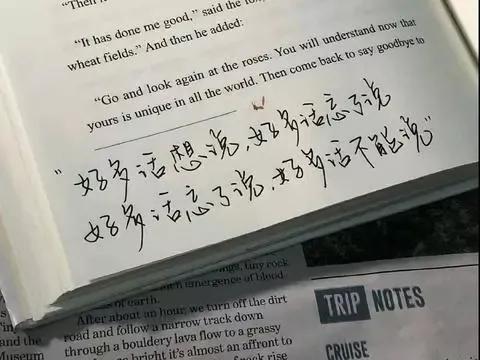 "It has done me good," said the
wheat fields." And then he added:
"Go and look again at the roses. You will understand now that
yours is unique in all the world. Then come back to say goodbye to
"好多话想说,好多话忘了说
好多话忘了说,好多话不能说"
tiny rock
emergence of blood
of earth.
and the
Museum
After about an hour, we turn off the dirt
road and follow a narrow track down
through a bouldery lava flow to a grassy
bright it's almost an affront to
rise
TRIP NOTES
CRUISE